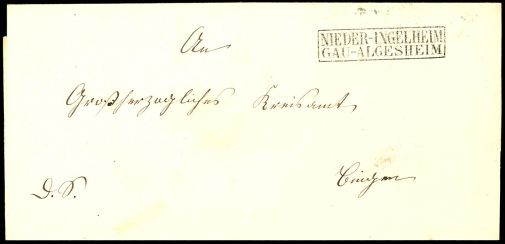 NIEDER-INGELHEIM
GAU-ALGESHEIM
An
Großherzogliches Kreisamt
Bingen
D. S.